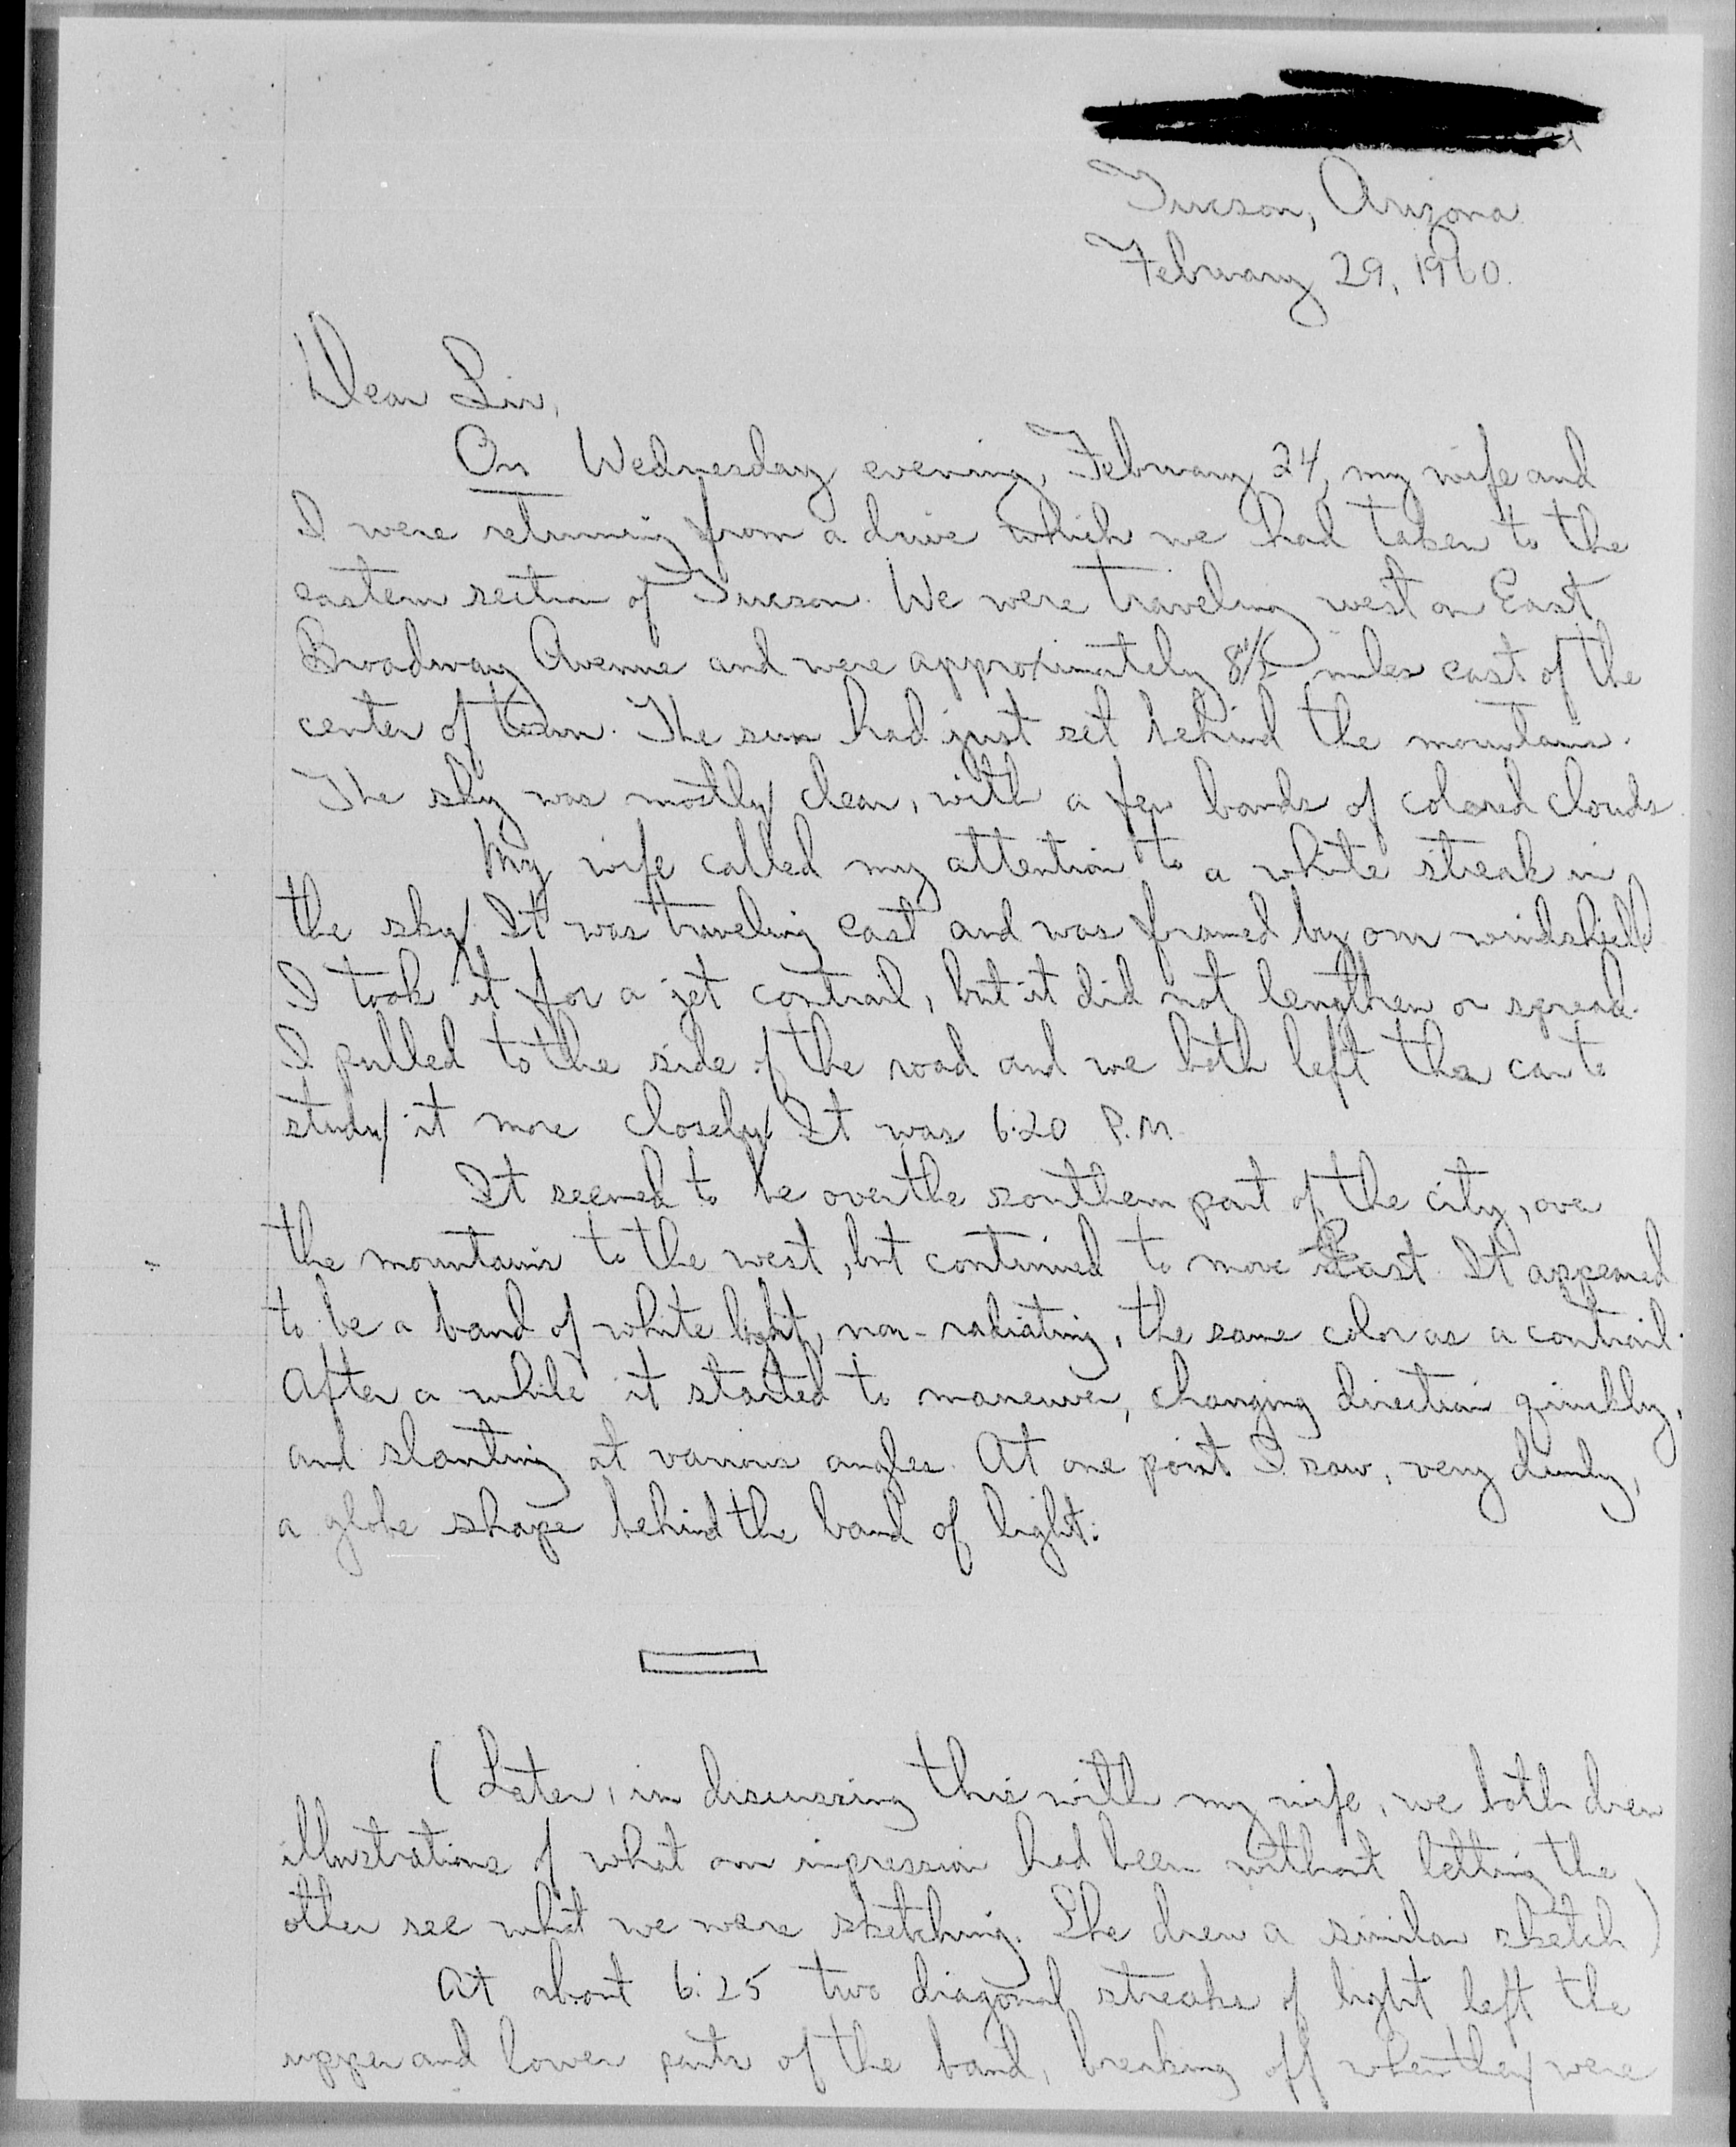 Tucson, Arizona
February 29, 1960.
Dear Sir,
On Wednesday evening, February 24, my wife and
I were returning from a drive which we had taken to the
eastern section of Tucson. We were traveling west on East
Broadway Avenue and were approximately 8½ miles east of the
center of town. The sun had just set behind the mountains.
The sky was mostly clear, with a few bands of colored clouds.
My wife called my attention to a white streak in
the sky. It was traveling east and was framed by our windshield.
I took it for a jet contrail, but it did not lengthen or spread.
I pulled to the side of the road and we both left the car to
study it more closely. It was 6:20 P.M.
It seemed to be over the southern part of the city, over
the mountains to the west, but continued to move East. It appeared
to be a band of white light, non-radiating, the same color as a contrail.
After a while it started to maneuver, changing direction quickly,
and slanting at various angles. At one point I saw, very dimly,
a globe shape behind the band of light:
(Later, in discussing this with my wife, we both drew
illustrations of what our impression had been without letting the
other see what we were sketching. She drew a similar sketch)
At about 6:25 two diagonal streaks of light left the
upper and lower parts of the band, breaking off when they were